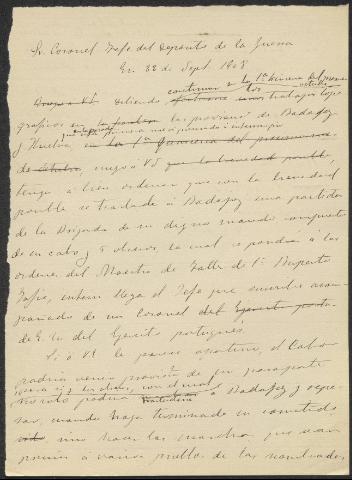 Sr. Coronel Jefe del Deposito de la Guerra
En 22 de Sept. 1908
Debiendo continuar en la 1ª quincena del
los trabajos topo
gráficos en las provincias de Badajoz
y Huelva, en la 1ª quincena del
de Octubre, ruego á VS que la brevedad posible,
tenga á bien ordenar que con la brevedad
posible se traslade á Badajoz una partida
de la Brigada de su digno mando compuesta
de un cabo y 5 obreros, la cual se pondrá á las
ordenes del Maestro de Taller de 1ª
interin llega el Jefe que suscribe acom
pañado de un Coronel del Ejercito
de E. M. del Ejercito portugués.
Si á VS le parece oportuno, el Cabo
podria venir provisto de un pasaporte
con el cual
podria á Badajoz y regre
sar, cuando haya terminado su cometido
sino hacer las marchas que sean
á varios pueblos de las nombradas